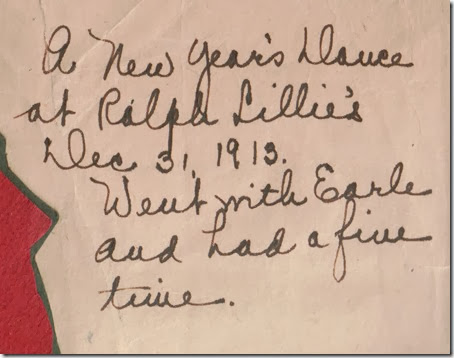 A New Year's Dance
at Ralph Lillie's
Dec 31, 1913.
Went with Earle
and had a fine
time.